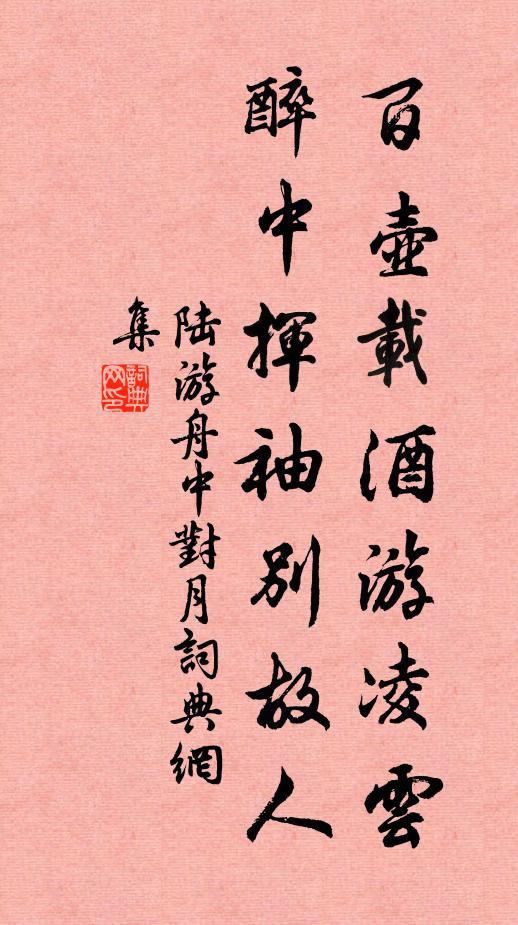 百壺載酒游凌雲
醉中揮袖別故人
陆游舟中對月詞典網
集
詞典
网印